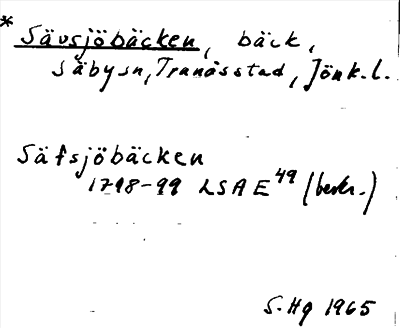 * Sävsjöbäcken, bäck,
Säbysn, Tranåsstad, Jönk.l.
Säfsjöbäcken
1798-99 LSA E49 (beskr.)
S.Hg 1965